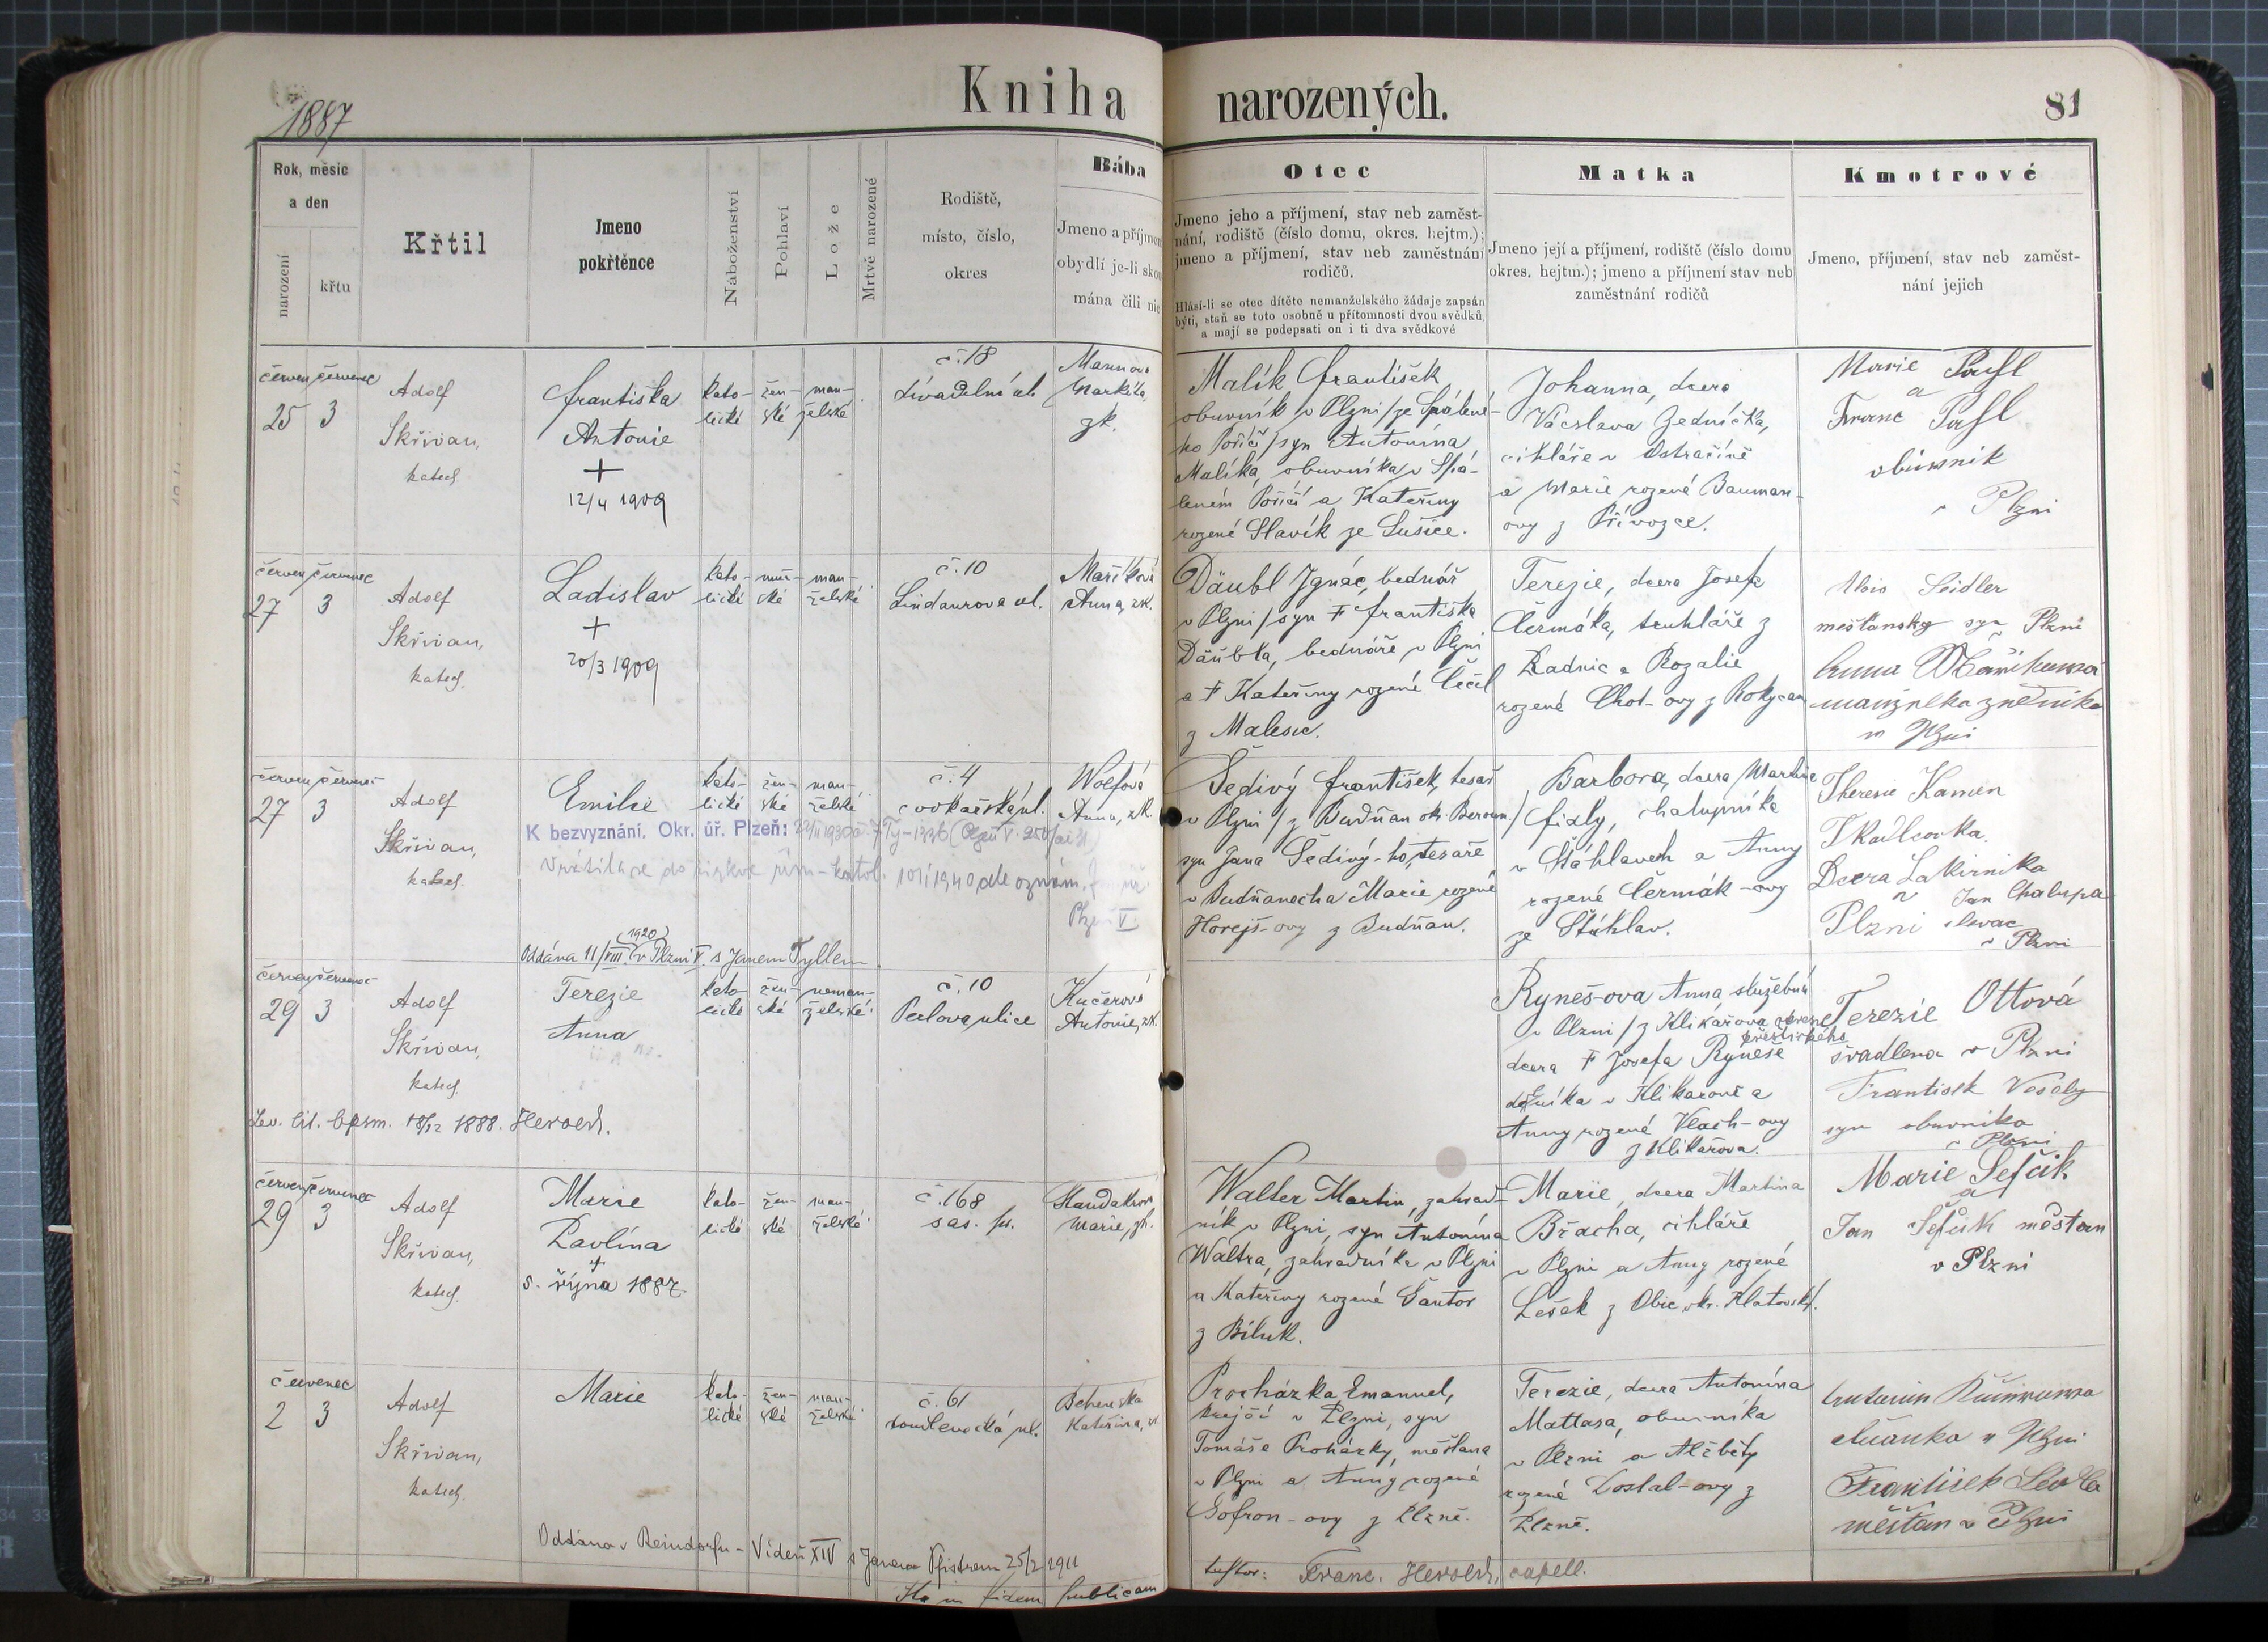 1887
Kniha narozených.
81
Rok, měsíc
a den
narození
křtu
Křtil
Jmeno
pokřtěnce
Náboženství
Pohlaví
Lože
Mrtvě narozené
Rodiště,
místo, číslo,
okres
Bába
Jmeno a příjmen
obydlí je-li skou
mána čili nic
Otec
Jmeno jeho a příjmení, stav neb zaměst-
nání, rodiště (číslo domu, okres. hejtm.);
jmeno a příjmení, stav neb zaměstnání
rodičů.
Hlásí-li se otec dítěte nemanželského žádaje zapsán
býti, staň se toto osobně u přítomnosti dvou svědků,
a mají se podepsati on i ti dva svědkové
Matka
Jmeno její a příjmení, rodiště (číslo domu
okres. hejtm.); jmeno a příjmení stav neb
zaměstnání rodičů
Kmotrové
Jmeno, příjmení, stav neb zaměst-
nání jejich
červen červenec
25 3
Adolf
Skřivan,
katech.
Františka
Antonie
+
12/4 1909
kato-
lické
žen-
ské
man-
želské
č. 18
Markéta,
zk.
Malík František
obuvník v Plzni / ze Spálené-
ho Poříčí / syn Antonína
Malíka, obuvníka v Spá-
leném Poříčí a Kateřiny
rozené Slavík ze Sušice.
Johanna, dcera
Václava Zedníčka,
cihláře v
a Marie rozené Bauman-
ovy z Přívozce.
Marie
a
Franc
obuwnik
v Plzni
červen červenec
27 3
Adolf
Skřivan,
katech.
Ladislav
+
20/3 1909
kato-
lické
muž-
ské
man-
želské
č. 10
Lindaurova ul.
Maříková
Anna, zk.
Däubl Ignác, bednář
v Plzni / syn † Františka
bednáře v Plzni
a † Kateřiny rozené
z Malesic.
Terezie, dcera Josefa
Čermáka, truhláře z
Radnic a Rozalie
rozené Chot-ovy z Rokycan
Alois Seidler
mešťanský syn v Plzni
Anna
manzelka
w Plzni
červen červenec
27 3
Adolf
Skřivan,
katech.
Emilie
kato-
lické
žen-
ské
man-
želské
č. 4
Wolfová
Anna, zk.
K bezvyznání. Okr. úř. Plzeň:
Vrátila se do církve řím-katol. 1940 dle oznám.
Plzeň V.
Šedivý František, tesař
v Plzni / z Budňan ok. Beroun. /
syn Jana Šedivý-ho, tesaře
v Budňanech a Marie rozené
Horejš-ovy z Budňan.
Barbora, dcera Martina
Fialy, chalupníka
v Štáhlavech a Anny
rozené Čermák-ovy
ze Štáhlav.
Theresie Kamen
Dcera Lakirnika
Jan Chalupa
Plzni
v Plzni
Oddána 11/VIII. 1920 v Plzni V. s Janem Tyllem.
červen červenec
29 3
Adolf
Skřivan,
katech.
Terezie
Anna
kato-
lické
žen-
ské
neman-
želské
č. 10
Perlova ulice
Kučerová
Antonie, zk.
Ryneš-ova Anna, služebná
v Plzni / z Klikařova okrese
přeštického
dcera † Josefa Ryneše
dělníka v Klikařově a
Anny rozené Vlach-ovy
z Klikařova.
Terezie Ottová
švadlena v Plzni
Frantisek Vesely
syn obuvnika
v Plzni
1888. Herold.
červen červenec
29 3
Adolf
Skřivan,
katech.
Marie
Pavlína
+
5. října 1887.
kato-
lické
žen-
ské
man-
želské
č. 168
sas. př.
Marie, zk.
Walter Martin, zahrad-
ník v Plzni, syn Antonína
Waltra, zahradníka v Plzni
a Kateřiny rozené Šantor
z Bíluk.
Marie, dcera Martina
Břacha, cihláře
v Plzni a Anny rozené
Lešek z Obic, okr. Klatovský.
Marie Sefčik
a
Jan Sefčik měštan
v Plzni
červenec
2 3
Adolf
Skřivan,
katech.
Marie
kato-
lické
žen-
ské
man-
želské
č. 61
Doudlevecká ul.
Kateřina, zk
Procházka Emanuel,
krejčí v Plzni, syn
Tomáše Procházky, měšťana
v Plzni a Anny rozené
Gofron-ovy z Plzně.
Terezie, dcera Antonína
Mattasa, obuvníka
v Plzni a Alžběty
rozené Dostal-ovy z
Plzně.
w Plzni
František
měšťan v Plzni
Oddána v Reindorfu - Vídeň XIV s Janem Pfistrem 25/2 1911
Ita in fidem publicam
testor: Franc. Herold, capell.